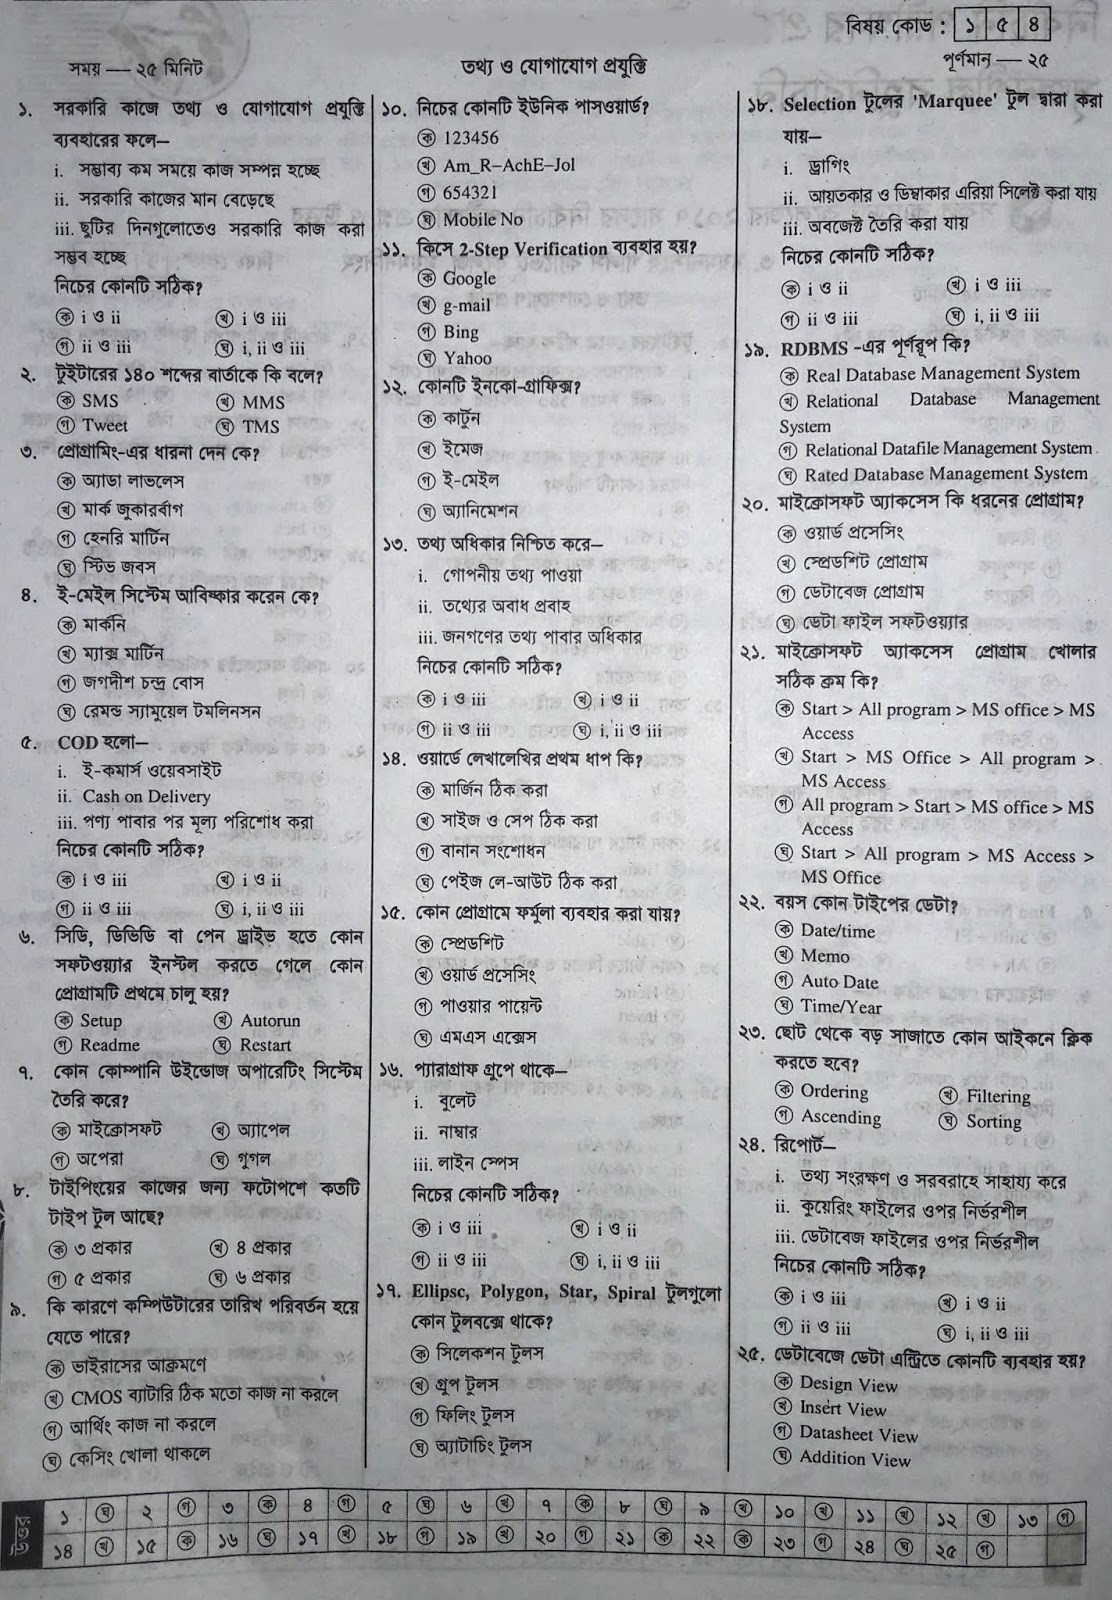 বিষয় কোড : ১ ৫ ৪
সময় — ২৫ মিনিট
তথ্য ও যোগাযোগ প্রযুক্তি
পূর্ণমান — ২৫
১. সরকারি কাজে তথ্য ও যোগাযোগ প্রযুক্তি
ব্যবহারের ফলে—
i. সম্ভাব্য কম সময়ে কাজ সম্পন্ন হচ্ছে
ii. সরকারি কাজের মান বেড়েছে
iii. ছুটির দিনগুলোতেও সরকারি কাজ করা
সম্ভব হচ্ছে
নিচের কোনটি সঠিক?
ⓚ i ও ii ⓚ i ও iii
গ ii ও iii ঘ i, ii ও iii
২. টুইটারের ১৪০ শব্দের বার্তাকে কি বলে?
ক SMS খ MMS
গ Tweet ঘ TMS
৩. প্রোগ্রামিং-এর ধারনা দেন কে?
ক অ্যাডা লাভলেস
খ মার্ক জুকারবার্গ
গ হেনরি মার্টিন
ঘ স্টিভ জবস
৪. ই-মেইল সিস্টেম আবিষ্কার করেন কে?
ক মার্কনি
খ ম্যাক্স মার্টিন
গ জগদীশ চন্দ্র বোস
ঘ রেমন্ড স্যামুয়েল টমলিনসন
৫. COD হলো—
i. ই-কমার্স ওয়েবসাইট
ii. Cash on Delivery
iii. পণ্য পাবার পর মূল্য পরিশোধ করা
নিচের কোনটি সঠিক?
ক i ও iii খ i ও ii
গ ii ও iii ঘ i, ii ও iii
৬. সিডি, ডিভিডি বা পেন ড্রাইভ হতে কোন
সফটওয়্যার ইনস্টল করতে গেলে কোন
প্রোগ্রামটি প্রথমে চালু হয়?
ক Setup খ Autorun
গ Readme ঘ Restart
৭. কোন কোম্পানি উইন্ডোজ অপারেটিং সিস্টেম
তৈরি করে?
ক মাইক্রোসফট খ অ্যাপেল
গ অপেরা ঘ গুগল
৮. টাইপিংয়ের কাজের জন্য ফটোশপে কতটি
টাইপ টুল আছে?
ক ৩ প্রকার খ ৪ প্রকার
গ ৫ প্রকার ঘ ৬ প্রকার
৯. কি কারণে কম্পিউটারের তারিখ পরিবর্তন হয়ে
যেতে পারে?
ক ভাইরাসের আক্রমণে
খ CMOS ব্যাটারি ঠিক মতো কাজ না করলে
গ আর্থিং কাজ না করলে
ঘ কেসিং খোলা থাকলে
১০. নিচের কোনটি ইউনিক পাসওয়ার্ড?
ক 123456
খ Am_R–AchE–Jol
গ 654321
ঘ Mobile No
১১. কিসে 2-Step Verification ব্যবহার হয়?
ক Google
খ g-mail
গ Bing
ঘ Yahoo
১২. কোনটি ইনকো-গ্রাফিক্স?
ক কার্টুন
খ ইমেজ
গ ই-মেইল
ঘ অ্যানিমেশন
১৩. তথ্য অধিকার নিশ্চিত করে—
i. গোপনীয় তথ্য পাওয়া
ii. তথ্যের অবাধ প্রবাহ
iii. জনগণের তথ্য পাবার অধিকার
নিচের কোনটি সঠিক?
ক i ও iii খ i ও ii
গ ii ও iii ঘ i, ii ও iii
১৪. ওয়ার্ডে লেখালেখির প্রথম ধাপ কি?
ক মার্জিন ঠিক করা
খ সাইজ ও সেপ ঠিক করা
গ বানান সংশোধন
ঘ পেইজ লে-আউট ঠিক করা
১৫. কোন প্রোগ্রামে ফর্মুলা ব্যবহার করা যায়?
ক স্প্রেডশিট
খ ওয়ার্ড প্রসেসিং
গ পাওয়ার পয়েন্ট
ঘ এমএস এক্সেস
১৬. প্যারাগ্রাফ গ্রুপে থাকে—
i. বুলেট
ii. নাম্বার
iii. লাইন স্পেস
নিচের কোনটি সঠিক?
ক i ও iii খ i ও ii
গ ii ও iii ঘ i, ii ও iii
১৭. Ellipsc, Polygon, Star, Spiral টুলগুলো
কোন টুলবক্সে থাকে?
ক সিলেকশন টুলস
খ গ্রুপ টুলস
গ ফিলিং টুলস
ঘ অ্যাটাচিং টুলস
১৮. Selection টুলের 'Marquee' টুল দ্বারা করা
যায়—
i. ড্রাগিং
ii. আয়তকার ও ডিম্বাকার এরিয়া সিলেক্ট করা যায়
iii. অবজেক্ট তৈরি করা যায়
নিচের কোনটি সঠিক?
ক i ও ii খ i ও iii
গ ii ও iii ঘ i, ii ও iii
১৯. RDBMS -এর পূর্ণরূপ কি?
ক Real Database Management System
খ Relational Database Management
System
গ Relational Datafile Management System
ঘ Rated Database Management System
২০. মাইক্রোসফট অ্যাকসেস কি ধরনের প্রোগ্রাম?
ক ওয়ার্ড প্রসেসিং
খ স্প্রেডশিট প্রোগ্রাম
গ ডেটাবেজ প্রোগ্রাম
ঘ ডেটা ফাইল সফটওয়্যার
২১. মাইক্রোসফট অ্যাকসেস প্রোগ্রাম খোলার
সঠিক ক্রম কি?
ক Start > All program > MS office > MS
Access
খ Start > MS Office > All program >
MS Access
গ All program > Start > MS office > MS
Access
ঘ Start > All program > MS Access >
MS Office
২২. বয়স কোন টাইপের ডেটা?
ক Date/time
খ Memo
গ Auto Date
ঘ Time/Year
২৩. ছোট থেকে বড় সাজাতে কোন আইকনে ক্লিক
করতে হবে?
ক Ordering খ Filtering
গ Ascending ঘ Sorting
২৪. রিপোর্ট—
i. তথ্য সংরক্ষণ ও সরবরাহে সাহায্য করে
ii. কুয়েরিং ফাইলের ওপর নির্ভরশীল
iii. ডেটাবেজ ফাইলের ওপর নির্ভরশীল
নিচের কোনটি সঠিক?
ক i ও iii খ i ও ii
গ ii ও iii ঘ i, ii ও iii
২৫. ডেটাবেজে ডেটা এন্ট্রিতে কোনটি ব্যবহার হয়?
ক Design View
খ Insert View
গ Datasheet View
ঘ Addition View
উত্তর
১ ঘ ২ গ ৩ ক ৪ গ ৫ ঘ ৬ খ ৭ ক ৮ ঘ ৯ খ ১০ খ ১১ খ ১২ খ ১৩ গ
১৪ খ ১৫ ক ১৬ ঘ ১৭ খ ১৮ গ ১৯ খ ২০ গ ২১ ক ২২ ক ২৩ গ ২৪ ঘ ২৫ গ